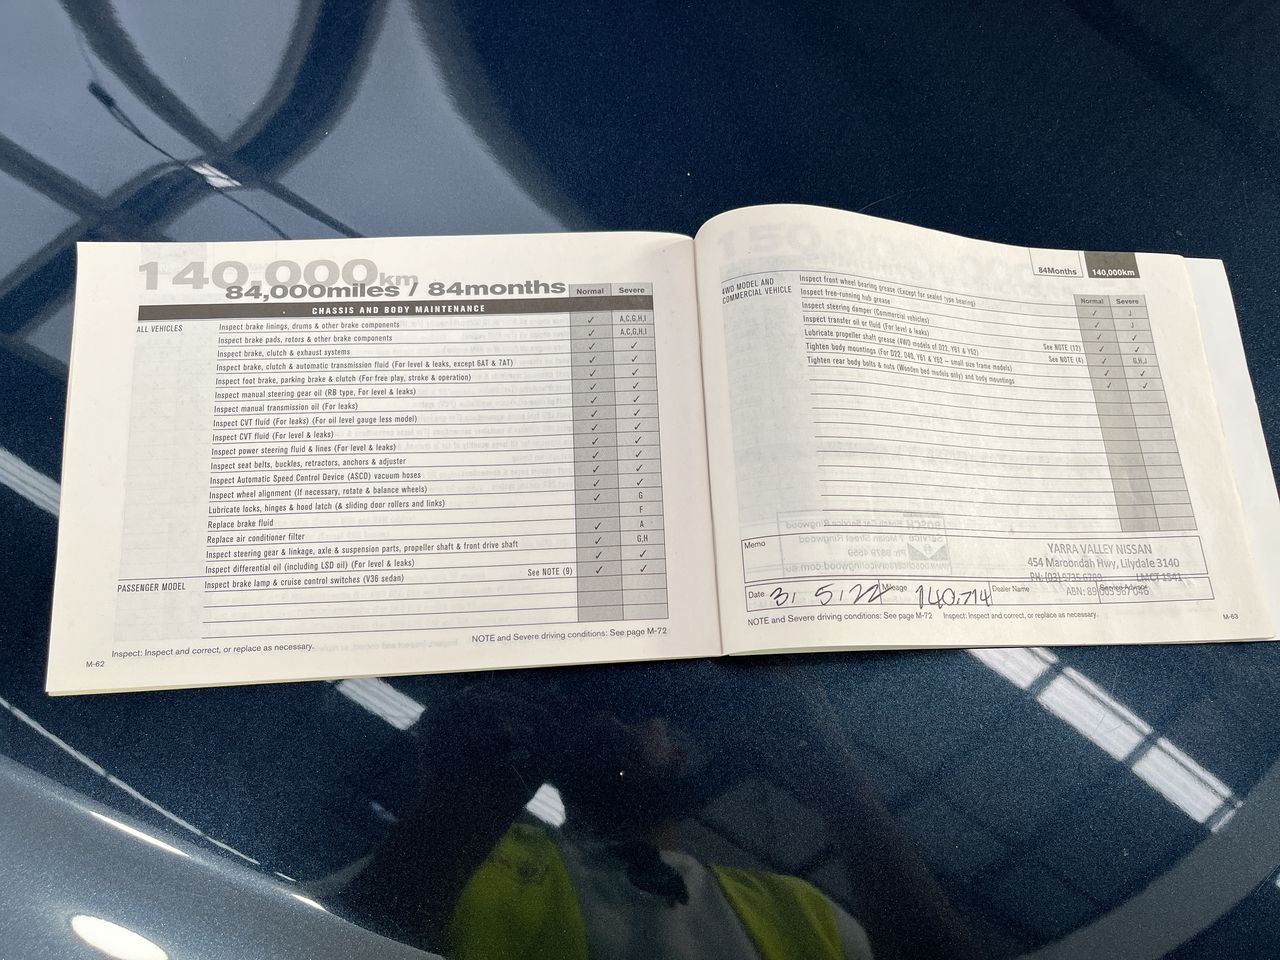 140,000km
84,000miles / 84months
Normal Severe
CHASSIS AND BODY MAINTENANCE
ALL VEHICLES
Inspect brake linings, drums & other brake components ✓ A,C,G,H,I
Inspect brake pads, rotors & other brake components ✓ A,C,G,H,I
Inspect brake, clutch & exhaust systems ✓ ✓
Inspect brake, clutch & automatic transmission fluid (For level & leaks, except 6AT & 7AT) ✓ ✓
Inspect foot brake, parking brake & clutch (For free play, stroke & operation) ✓ ✓
Inspect manual steering gear oil (RB type, For level & leaks) ✓ ✓
Inspect manual transmission oil (For leaks) ✓ ✓
Inspect CVT fluid (For leaks) (For oil level gauge less model) ✓ ✓
Inspect CVT fluid (For level & leaks) ✓ ✓
Inspect power steering fluid & lines (For level & leaks) ✓ ✓
Inspect seat belts, buckles, retractors, anchors & adjuster ✓ ✓
Inspect Automatic Speed Control Device (ASCD) vacuum hoses ✓ ✓
Inspect wheel alignment (If necessary, rotate & balance wheels) ✓ G
Lubricate locks, hinges & hood latch (& sliding door rollers and links) F
Replace brake fluid ✓ A
Replace air conditioner filter ✓ G,H
Inspect steering gear & linkage, axle & suspension parts, propeller shaft & front drive shaft ✓ ✓
Inspect differential oil (including LSD oil) (For level & leaks) ✓ ✓
PASSENGER MODEL
Inspect brake lamp & cruise control switches (V36 sedan) See NOTE (9)
NOTE and Severe driving conditions: See page M-72
Inspect: Inspect and correct, or replace as necessary.
M-62
84Months 140,000km
Normal Severe
4WD MODEL AND
COMMERCIAL VEHICLE
Inspect front wheel bearing grease (Except for sealed type bearing) ✓ J
Inspect free-running hub grease ✓ J
Inspect steering damper (Commercial vehicles) ✓ ✓
Inspect transfer oil or fluid (For level & leaks) ✓ ✓
Lubricate propeller shaft grease (4WD models of D22, Y61 & Y62) See NOTE (12) ✓ G,H,J
Tighten body mountings (For D22, D40, Y61 & Y62 – small size frame models) See NOTE (4) ✓ ✓
Tighten rear body bolts & nuts (Wooden bed models only) and body mountings ✓ ✓
Memo
YARRA VALLEY NISSAN
454 Maroondah Hwy, Lilydale 3140
PH: (03) 9735 LMCT 1541
ABN: 89 005 967 046
Date 3. 5. 22 Mileage 140,714 Dealer Name Service Advisor
NOTE and Severe driving conditions: See page M-72 Inspect: Inspect and correct, or replace as necessary.
M-63